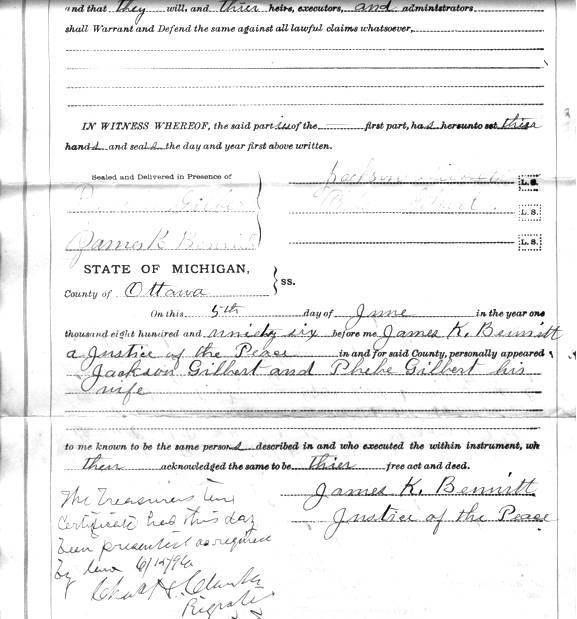 and that they will, and thier heirs, executors, and administrators
shall Warrant and Defend the same against all lawful claims whatsoever,
IN WITNESS WHEREOF, the said parties of the first part, have hereunto set thier
hands and seals the day and year first above written.
Sealed and Delivered in Presence of
Jackson
L. S.
L. S.
James K Bennitt
L. S.
STATE OF MICHIGAN,
ss.
County of Ottawa
On this 5th day of June in the year one
thousand eight hundred and ninety six before me James K. Bennitt
a Justice of the Peace in and for said County, personally appeared
Jackson Gilbert and Phebe Gilbert his
wife
to me known to be the same persons described in and who executed the within instrument, wh
then acknowledged the same to be thier free act and deed.
James K. Bennitt
Justice of the Peace
The Treasurers
Certificate has this day
been presented as required
by law 6/12/96